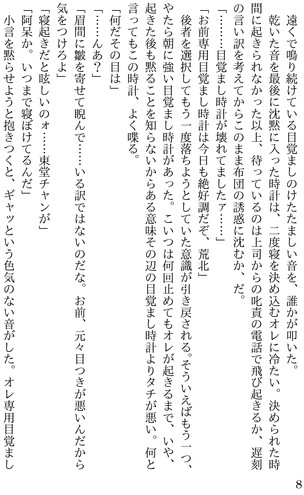 遠くで鳴り続けている目覚ましのけたたましい音を、誰かが叩いた。
乾いた音を最後に沈黙に入った時計は、二度寝を決め込むオレに冷たい。決められた時
間に起きられなかった以上、待っているのは上司からの叱責の電話で飛び起きるか、遅刻
の言い訳を考えてからこのまま布団の誘惑に沈むか、だ。
「………目覚まし時計が壊れてましたァ……」
「お前専用目覚まし時計は今日も絶好調だぞ、荒北」
後者を選択してもう一度落ちようとしていた意識が引き戻される。そういえばもう一つ、
やたら朝に強い目覚まし時計があった。こいつは何回止めてもオレが起きるまで、いや、
起きた後も黙ることを知らないからある意味その辺の目覚まし時計よりタチが悪い。何と
言ってもこの時計、よく喋る。
「何だその目は」
「……んあ？」
「眉間に皺を寄せて睨んで……いる訳ではないのだな。お前、元々目つきが悪いんだから
気をつけろよ」
「寝起きだと眩しいのォ……東堂チャンが」
「阿呆か。いつまで寝ぼけてるんだ」
小言を黙らせようと抱きつくと、ギャッという色気のない音がした。オレ専用目覚まし
8